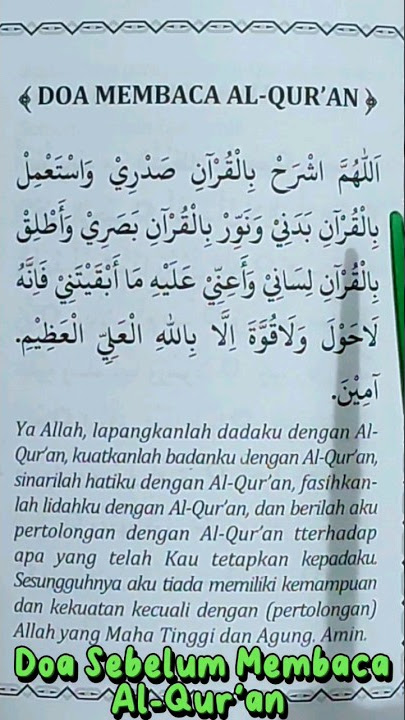 DOA MEMBACA AL-QUR'AN
اَللّٰهُمَّ اشْرَحْ بِالْقُرْآنِ صَدْرِيْ وَاسْتَعْمِلْ
بِالْقُرْآنِ بَدَنِيْ وَنَوِّرْ بِالْقُرْآنِ بَصَرِيْ وَأَطْلِقْ
بِالْقُرْآنِ لِسَانِيْ وَأَعِنِّيْ عَلَيْهِ مَا أَبْقَيْتَنِيْ فَاِنَّهُ
لَاحَوْلَ وَلَاقُوَّةَ اِلَّا بِاللهِ الْعَلِيِّ الْعَظِيْمِ.
آمِيْنَ.
Ya Allah, lapangkanlah dadaku dengan Al-
Qur'an, kuatkanlah badanku dengan Al-Qur'an,
sinarilah hatiku dengan Al-Qur'an, fasihkan-
lah lidahku dengan Al-Qur'an, dan berilah aku
pertolongan dengan Al-Qur'an tterhadap
apa yang telah Kau tetapkan kepadaku.
Sesungguhnya aku tiada memiliki kemampuan
dan kekuatan kecuali dengan (pertolongan)
Allah yang Maha Tinggi dan Agung. Amin.
Doa Sebelum Membaca
Al-Qur'an